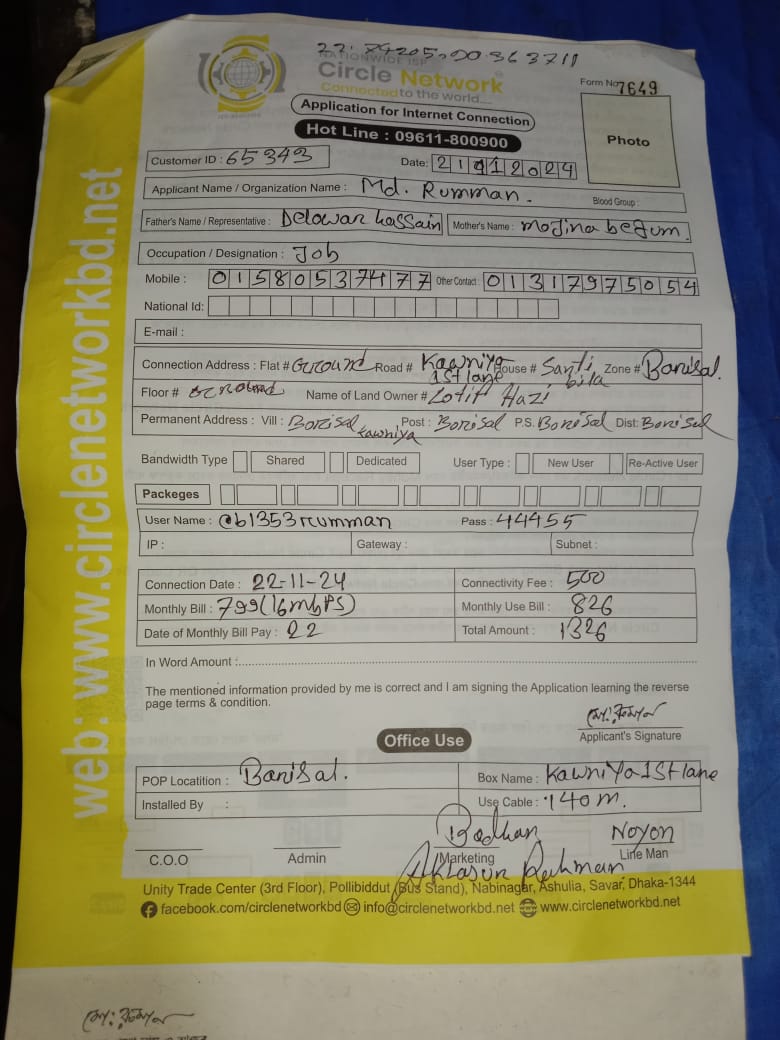 22.
NATIONWIDE ISP
Circle Network
Connected to the world...
Form No 7649
Application for Internet Connection
Hot Line : 09611-800900
Photo
Customer ID : 65343
Date: 2024
Applicant Name / Organization Name : Md. Rumman.
Blood Group :
Father's Name / Representative : Delowar hossain Mother's Name : mojina begum.
Occupation / Designation : Job
Mobile : 01580537477 Other Contact : 01317975054
National Id:
E-mail :
Connection Address : Flat # Ground Road # Kawniya 1st lane House # Santi Zone # Barisal.
Floor # Name of Land Owner # Lotif Hazi
Permanent Address : Vill : Borisal kawniya Post : Borisal P.S. Borisal Dist: Borisal
Bandwidth Type Shared Dedicated User Type : New User Re-Active User
Packeges
User Name : @b1353rumman Pass : 44455
IP : Gateway : Subnet :
Connection Date : 22-11-24 Connectivity Fee : 500
Monthly Bill : 799(16mbps) Monthly Use Bill : 826
Date of Monthly Bill Pay : 22 Total Amount : 1326
In Word Amount :
The mentioned information provided by me is correct and I am signing the Application learning the reverse
page terms & condition.
মো: রুম্মান
Applicant's Signature
Office Use
POP Locatition : Barisal. Box Name : Kawniya 1st lane
Installed By : Use Cable : 140m.
Badhan Noyon
C.O.O Admin Marketing Line Man
Rahman
Unity Trade Center (3rd Floor), Pollibiddut (Bus Stand), Nabinagar, Ashulia, Savar, Dhaka-1344
facebook.com/circlenetworkbd info@circlenetworkbd.net www.circlenetworkbd.net
web: www.circlenetworkbd.net
মো: রুম্মান